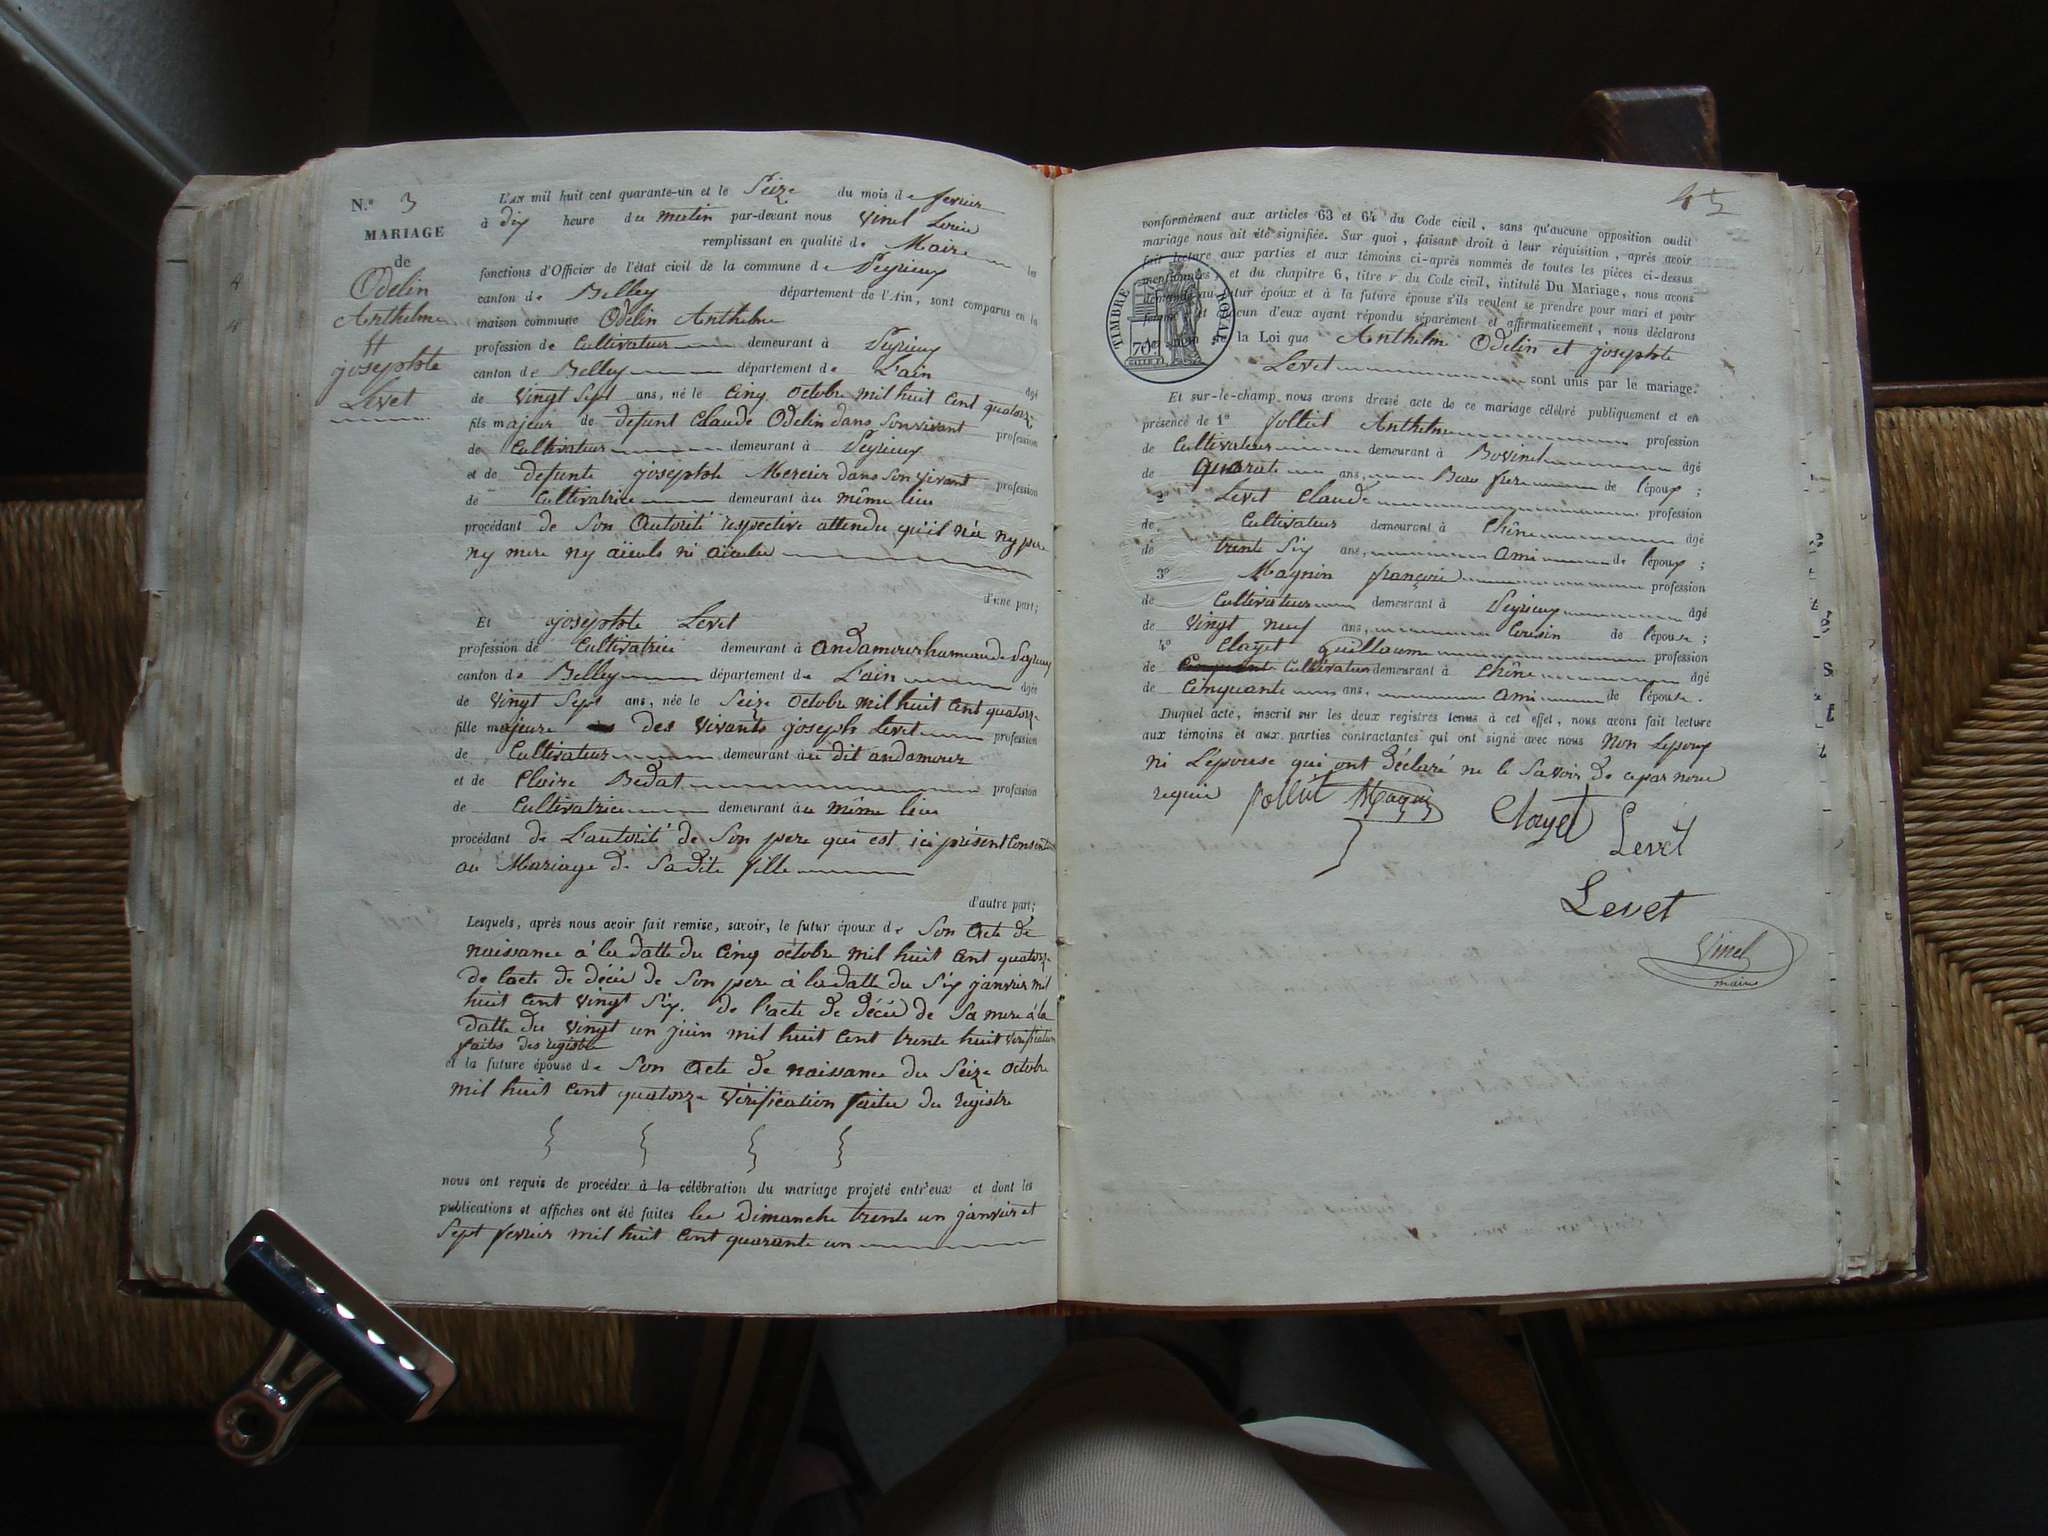 N.º 3
MARIAGE
de
Odelin
Anthelme
et
josephte
Levet
L'AN mil huit cent quarante-un et le Seize du mois de fevrier
à dix heure du matin par-devant nous Vinel
remplissant en qualité de Maire les
fonctions d'Officier de l'état civil de la commune de Peyrieux
canton de Belley département de l'Ain, sont comparus en la
maison commune Odelin Anthelme
profession de Cultivateur demeurant à Peyrieux
canton de Belley département de L'ain âgé
de vingt Sept ans, né le Cinq octobre mil huit Cent quatorze
fils majeur de defunt Claude Odelin dans Son vivant profession
de Cultivateur demeurant à Peyrieux
et de defunte josephte Mercier dans Son vivant profession
de Cultivatrice demeurant au même lieu
procédant de Son autorité respective attendu qu'il n'a ny pere
ny mere ny aïeuls ni aïeules
d'une part;
Et josephte Levet
profession de Cultivatrice demeurant à andamour hameau de Peyrieux
canton de Belley département de L'ain âgée
de vingt Sept ans, née le Seize octobre mil huit Cent quatorze
fille majeure des vivants joseph Levet profession
de Cultivateur demeurant au dit andamour
et de Claire Bedat profession
de Cultivatrice demeurant au même lieu
procédant de L'autorité de Son pere qui est ici présent Consentant
au Mariage de Sa dite fille
d'autre part;
Lesquels, après nous avoir fait remise, savoir, le futur époux de Son acte de
naissance à la datte du Cinq octobre mil huit Cent quatorze
de l'acte de décès de Son pere à la datte du Six janvier mil
huit Cent vingt Six. de l'acte de décès de Sa mere à la
datte du vingt un juin mil huit Cent trente huit vérification
faites des registre
et la future épouse de Son acte de naissance du Seize octobre
mil huit Cent quatorze vérification faite du registre
nous ont requis de procéder à la célébration du mariage projeté entr'eux et dont les
publications et affiches ont été faites les Dimanche trente un janvier et
Sept fevrier mil huit Cent quarante un
45
conformément aux articles 63 et 64 du Code civil, sans qu'aucune opposition audit
mariage nous ait été signifiée. Sur quoi, faisant droit à leur réquisition, après avoir
fait lecture aux parties et aux témoins ci-après nommés de toutes les pièces ci-dessus
mentionnées, et du chapitre 6, titre v du Code civil, intitulé Du Mariage, nous avons
demandé au futur époux et à la future épouse s'ils veulent se prendre pour mari et pour
femme, et chacun d'eux ayant répondu séparément et affirmativement, nous déclarons
la Loi que Anthelme Odelin et josephte
Levet sont unis par le mariage.
TIMBRE ROYAL
70
Et sur-le-champ nous avons dressé acte de ce mariage célébré publiquement et en
présence de 1º folliet Anthelme profession
de Cultivateur demeurant à Bovinel âgé
de quarante ans, Beau frere de l'époux;
2º Levet Claude profession
de Cultivateur demeurant à Chêne âgé
de trente Six ans, ami de l'époux;
3º Magnin françois profession
de Cultivateur demeurant à Peyrieux âgé
de vingt neuf ans, Cousin de l'épouse;
4º Clayet guillaume profession
de Cultivateur demeurant à Chêne âgé
de Cinquante ans, ami de l'épouse.
Duquel acte, inscrit sur les deux registres tenus à cet effet, nous avons fait lecture
aux témoins et aux parties contractantes qui ont signé avec nous Non L'epoux
ni L'épouse qui ont déclaré ne le Savoir de ce par nous
requis folliet Magnin Clayet Levet
Levet
Vinel
maire